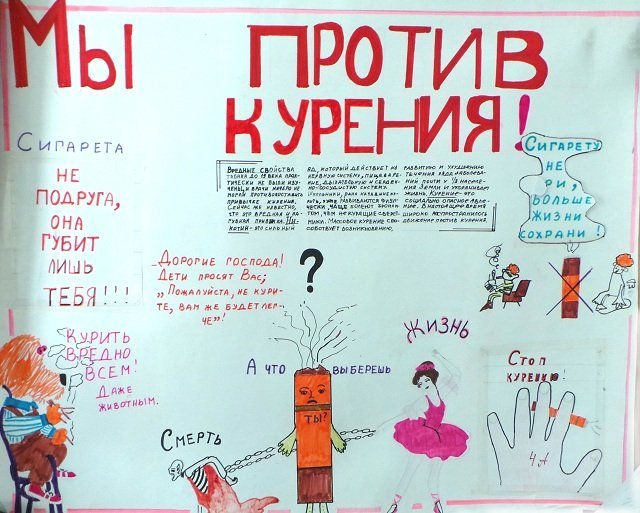 Мы ПРОТИВ
КУРЕНИЯ!
СИГАРЕТА
НЕ
ПОДРУГА,
ОНА
ГУБИТ
ЛИШЬ
ТЕБЯ!!!
ВРЕДНЫЕ СВОЙСТВА
ТАБАКА ДО ВЕКА ПРАК-
ТИЧЕСКИ НЕ БЫЛИ ИЗУ-
ЧЕНЫ, И ВРАЧИ НИЧЕГО НЕ
МОГЛИ ПРОТИВОПОСТАВИТЬ
ПРИВЫЧКЕ КУРЕНИЯ.
СЕЙЧАС ЖЕ ИЗВЕСТНО,
ЧТО ЭТО ВРЕДНАЯ И ПА-
ГУБНАЯ ПРИВЫЧКА. НИ-
КОТИН-ЭТО СИЛЬНЫЙ
ЯД, КОТОРЫЙ ДЕЙСТВУЕТ НА
НЕРВНУЮ СИСТЕМУ, ПИЩЕВАРЕ-
НИЕ, ДЫХАТЕЛЬНУЮ И СЕРДЕЧ-
НО-СОСУДИСТУЮ СИСТЕМУ.
ШКОЛЬНИКИ, РАНО НАЧАВШИЕ КУ-
РИТЬ, ХУЖЕ РАЗВИВАЮТСЯ ФИЗИ-
ЧЕСКИ, ЧАЩЕ БОЛЕЮТ БРОНХИ-
ТОМ, ЧЕМ НЕ КУРЯЩИЕ СВЕРС-
НИКИ. МАССОВОЕ КУРЕНИЕ СПО-
СОБСТВУЕТ ВОЗНИКНОВЕНИЮ,
РАЗВИТИЮ И УХУДШЕНИЮ
ТЕЧЕНИЯ РЯДА ЗАБОЛЕВА-
НИЙ ПОЧТИ У НАСЕЛЕ-
НИЯ ЗЕМЛИ И УКОРАЧИВАЕТ
ЖИЗНЬ. КУРЕНИЕ-ЭТО
СОЦИАЛЬНО ОПАСНОЕ ЯВЛЕ-
НИЕ. В НАСТОЯЩЕЕ ВРЕМЯ
ШИРОКО РАСПРОСТРАНИЛОСЬ
ДВИЖЕНИЕ ПРОТИВ КУРЕНИЯ.
СИГАРЕТУ
НЕ
РИ,
БОЛЬШЕ
ЖИЗНИ
СОХРАНИ!
ДОРОГИЕ ГОСПОДА!
ДЕТИ ПРОСЯТ ВАС;
„ПОЖАЛУЙСТА, НЕ КУРИ-
ТЕ, ВАМ ЖЕ БУДЕТ ЛЕГ-
ЧЕ"!
?
КУРИТЬ
ВРЕДНО
ВСЕМ!
ДАЖЕ
ЖИВОТНЫМ.
А ЧТО ВЫБЕРЕШЬ
ТЫ?
СМЕРТЬ
ЖИЗНЬ
СТОП
КУРЕНИЮ!
4А